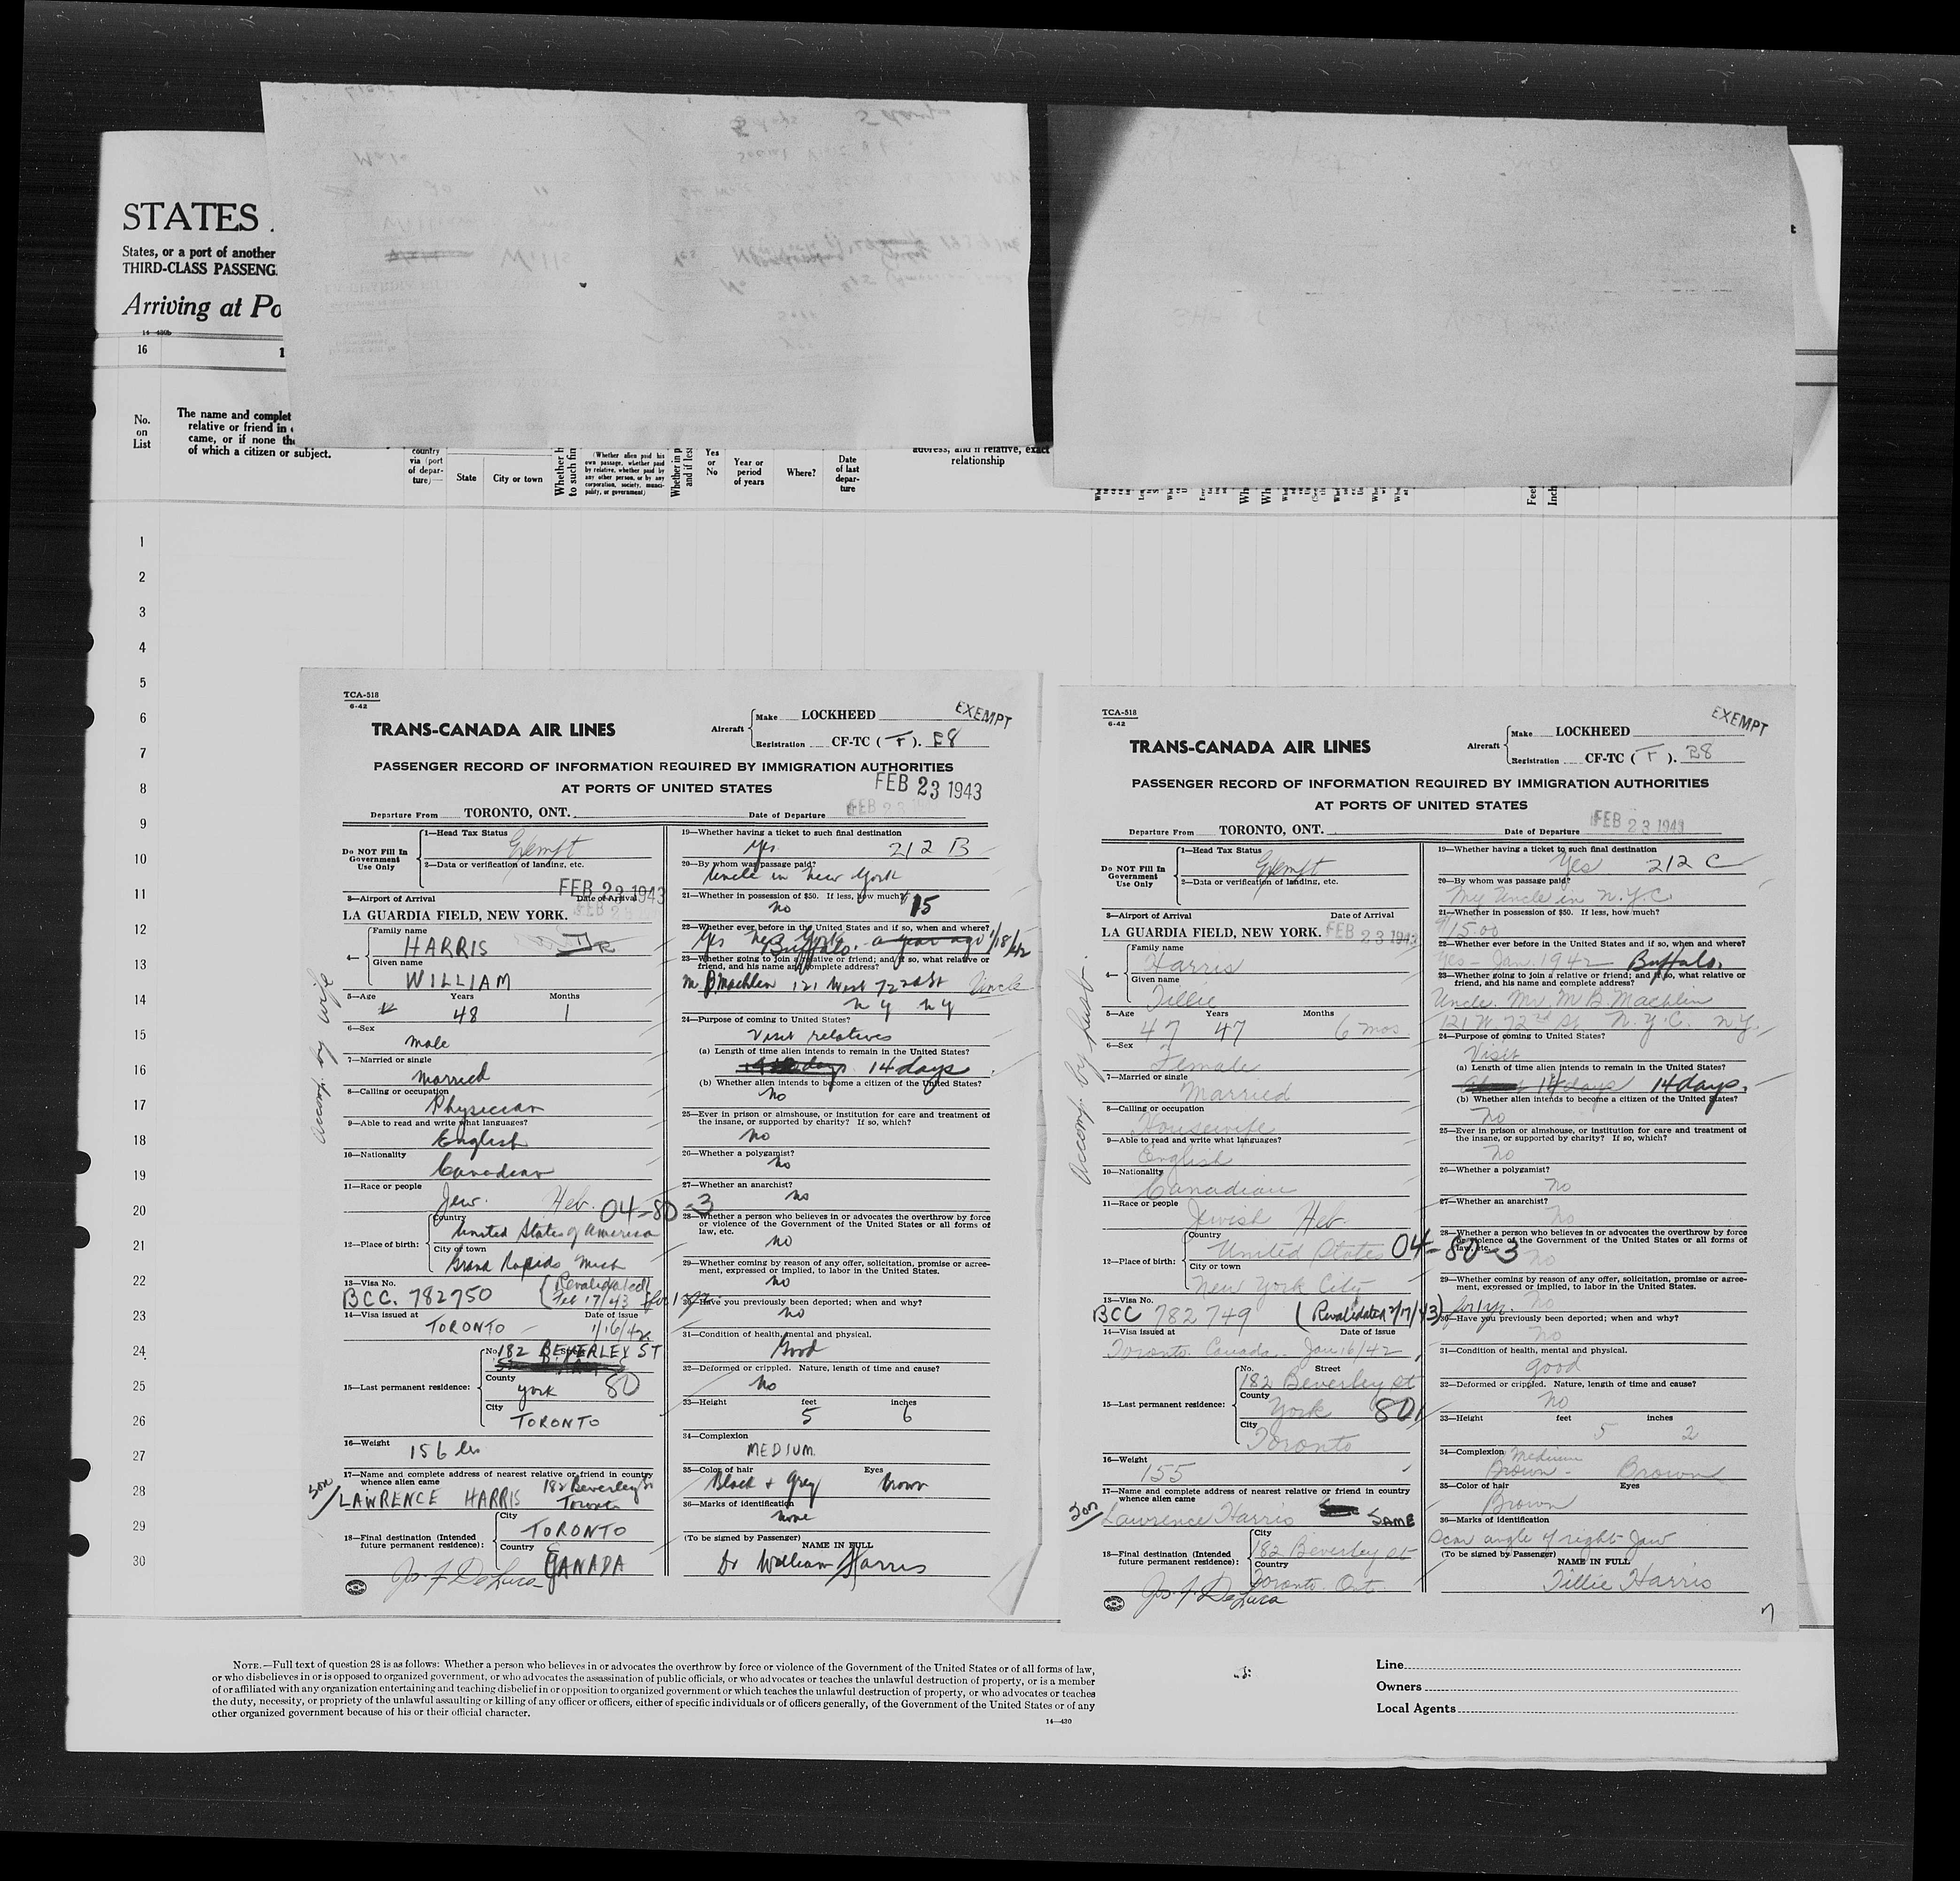 STATES
States, or a port of another
THIRD-CLASS PASSENG
Arriving at Po
16
No.
on
List
The name and complet
relative or friend in
came, or if none the
of which a citizen or subject.
country
via (port
of depar-
ture)—
State
City or town
(Whether alien paid his
own passage, whether paid
by relative, whether paid by
any other person, or by any
corporation, society, munici-
pality, or government)
Yes
or
No
Year or
period
of years
Where?
Date
of last
depar-
ture
address, and if relative, exact
relationship
Feet
Inch
1
2
3
4
5
6
7
8
9
10
11
12
13
14
15
16
17
18
19
20
21
22
23
24
25
26
27
28
29
30
TCA-518
6-42
TRANS-CANADA AIR LINES
Aircraft
Make LOCKHEED
EXEMPT
Registration CF-TC (T). E8
PASSENGER RECORD OF INFORMATION REQUIRED BY IMMIGRATION AUTHORITIES
AT PORTS OF UNITED STATES
FEB 23 1943
Departure From TORONTO, ONT. Date of Departure
Do NOT Fill In
Government
Use Only
1—Head Tax Status
Exempt
2—Data or verification of landing, etc.
FEB 23 1943
3—Airport of Arrival Date of Arrival
LA GUARDIA FIELD, NEW YORK.
4—
Family name
HARRIS
Given name
WILLIAM
Accomp. by wife
5—Age Years Months
48 1
6—Sex
male
7—Married or single
married
8—Calling or occupation
Physician
9—Able to read and write what languages?
English
10—Nationality
Canadian
11—Race or people
Jew. Heb. 04-80-3
12—Place of birth:
Country
United States of America
City or town
Grand Rapids Mich
13—Visa No.
BCC. 782750 (Revalidated Feb 17/43 for 1 yr.
14—Visa issued at Date of issue
TORONTO 1/16/42
15—Last permanent residence:
No. Street
182 BEVERLEY ST
County
York 80
City
TORONTO
16—Weight
156 lbs
17—Name and complete address of nearest relative or friend in country
whence alien came
son/ LAWRENCE HARRIS 182 Beverley St
Toronto
18—Final destination (Intended
future permanent residence):
City
TORONTO
Country
CANADA
Jos. F. DeLuca
19—Whether having a ticket to such final destination
Yes 212 B
20—By whom was passage paid?
Uncle in New York
21—Whether in possession of $50. If less, how much?
no 15
22—Whether ever before in the United States and if so, when and where?
Yes New York Buffalo. a year ago 1/18/42
23—Whether going to join a relative or friend; and if so, what relative or
friend, and his name and complete address?
M B. Machlin 121 West 72nd St Uncle
N Y N Y
24—Purpose of coming to United States?
Visit relatives
(a) Length of time alien intends to remain in the United States?
14 days
(b) Whether alien intends to become a citizen of the United States?
No
25—Ever in prison or almshouse, or institution for care and treatment of
the insane, or supported by charity? If so, which?
no
26—Whether a polygamist?
no
27—Whether an anarchist?
no
28—Whether a person who believes in or advocates the overthrow by force
or violence of the Government of the United States or all forms of
law, etc.
no
29—Whether coming by reason of any offer, solicitation, promise or agree-
ment, expressed or implied, to labor in the United States.
no
30—Have you previously been deported; when and why?
no
31—Condition of health, mental and physical.
Good
32—Deformed or crippled. Nature, length of time and cause?
No
33—Height feet inches
5 6
34—Complexion
MEDIUM
35—Color of hair Eyes
Black & Grey brown
36—Marks of identification
none
(To be signed by Passenger)
NAME IN FULL
Dr William Harris
TCA-518
6-42
TRANS-CANADA AIR LINES
Aircraft
Make LOCKHEED
EXEMPT
Registration CF-TC (T). B8
PASSENGER RECORD OF INFORMATION REQUIRED BY IMMIGRATION AUTHORITIES
AT PORTS OF UNITED STATES
Departure From TORONTO, ONT. Date of Departure FEB 23 1943
Do NOT Fill In
Government
Use Only
1—Head Tax Status
Exempt
2—Data or verification of landing, etc.
3—Airport of Arrival Date of Arrival
LA GUARDIA FIELD, NEW YORK. FEB 23 1943
4—
Family name
Harris
Given name
Tillie
Accomp. by husb.
5—Age Years Months
47 47 6 mos.
6—Sex
Female
7—Married or single
Married
8—Calling or occupation
Housewife
9—Able to read and write what languages?
English
10—Nationality
Canadian
11—Race or people
Jewish Heb.
12—Place of birth:
Country
United States 04-80-3
City or town
New York City
13—Visa No.
BCC 782749 (Revalidated 2/17/43) for 1 yr.
14—Visa issued at Date of issue
Toronto. Canada. Jan 16/42
15—Last permanent residence:
No. Street
182 Beverley st
County
York 80
City
Toronto
16—Weight
155
17—Name and complete address of nearest relative or friend in country
whence alien came
son/ Lawrence Harris SAME
18—Final destination (Intended
future permanent residence):
City
182 Beverley st
Country
Toronto. Ont.
Jos. F. DeLuca
19—Whether having a ticket to such final destination
Yes 212 C
20—By whom was passage paid?
My Uncle in N.Y.C
21—Whether in possession of $50. If less, how much?
$15.00
22—Whether ever before in the United States and if so, when and where?
Yes - Jan. 1942 Buffalo.
23—Whether going to join a relative or friend; and if so, what relative or
friend, and his name and complete address?
Uncle. Mr. M B. Machlin
121 W. 72nd St. N.Y.C. N.Y.
24—Purpose of coming to United States?
Visit
(a) Length of time alien intends to remain in the United States?
14 days.
(b) Whether alien intends to become a citizen of the United States?
No
25—Ever in prison or almshouse, or institution for care and treatment of
the insane, or supported by charity? If so, which?
No
26—Whether a polygamist?
No
27—Whether an anarchist?
No
28—Whether a person who believes in or advocates the overthrow by force
or violence of the Government of the United States or all forms of
law, etc.
No
29—Whether coming by reason of any offer, solicitation, promise or agree-
ment, expressed or implied, to labor in the United States.
No
30—Have you previously been deported; when and why?
No
31—Condition of health, mental and physical.
good
32—Deformed or crippled. Nature, length of time and cause?
No
33—Height feet inches
5 2
34—Complexion
Medium
Brown - Brown
35—Color of hair Eyes
Brown
36—Marks of identification
Scar angle of right Jaw
(To be signed by Passenger)
NAME IN FULL
Tillie Harris
7
NOTE.—Full text of question 28 is as follows: Whether a person who believes in or advocates the overthrow by force or violence of the Government of the United States or of all forms of law,
or who disbelieves in or is opposed to organized government, or who advocates the assassination of public officials, or who advocates or teaches the unlawful destruction of property, or is a member
of or affiliated with any organization entertaining and teaching disbelief in or opposition to organized government or which teaches the unlawful destruction of property, or who advocates or teaches
the duty, necessity, or propriety of the unlawful assaulting or killing of any officer or officers, either of specific individuals or of officers generally, of the Government of the United States or of any
other organized government because of his or their official character.
14—430
Line
Owners
Local Agents